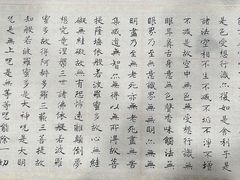 是色受想行識亦復如是舍利子是
諸法空相不生不滅不垢不淨不增
不減是故空中無色無受想行識無
眼耳鼻舌身意無色聲香味觸法無
眼界乃至無意識界無無明亦無無
明盡乃至無老死亦無老死盡無苦
集滅道無智亦無得以無所得故菩
提薩埵依般若波羅蜜多故心無罣
礙無罣礙故無有恐怖遠離顛倒夢
想究竟涅槃三世諸佛依般若波羅
蜜多故得阿耨多羅三藐三菩提故
知般若波羅蜜多是大神咒是大明
咒是無上咒是無等等咒能除一切